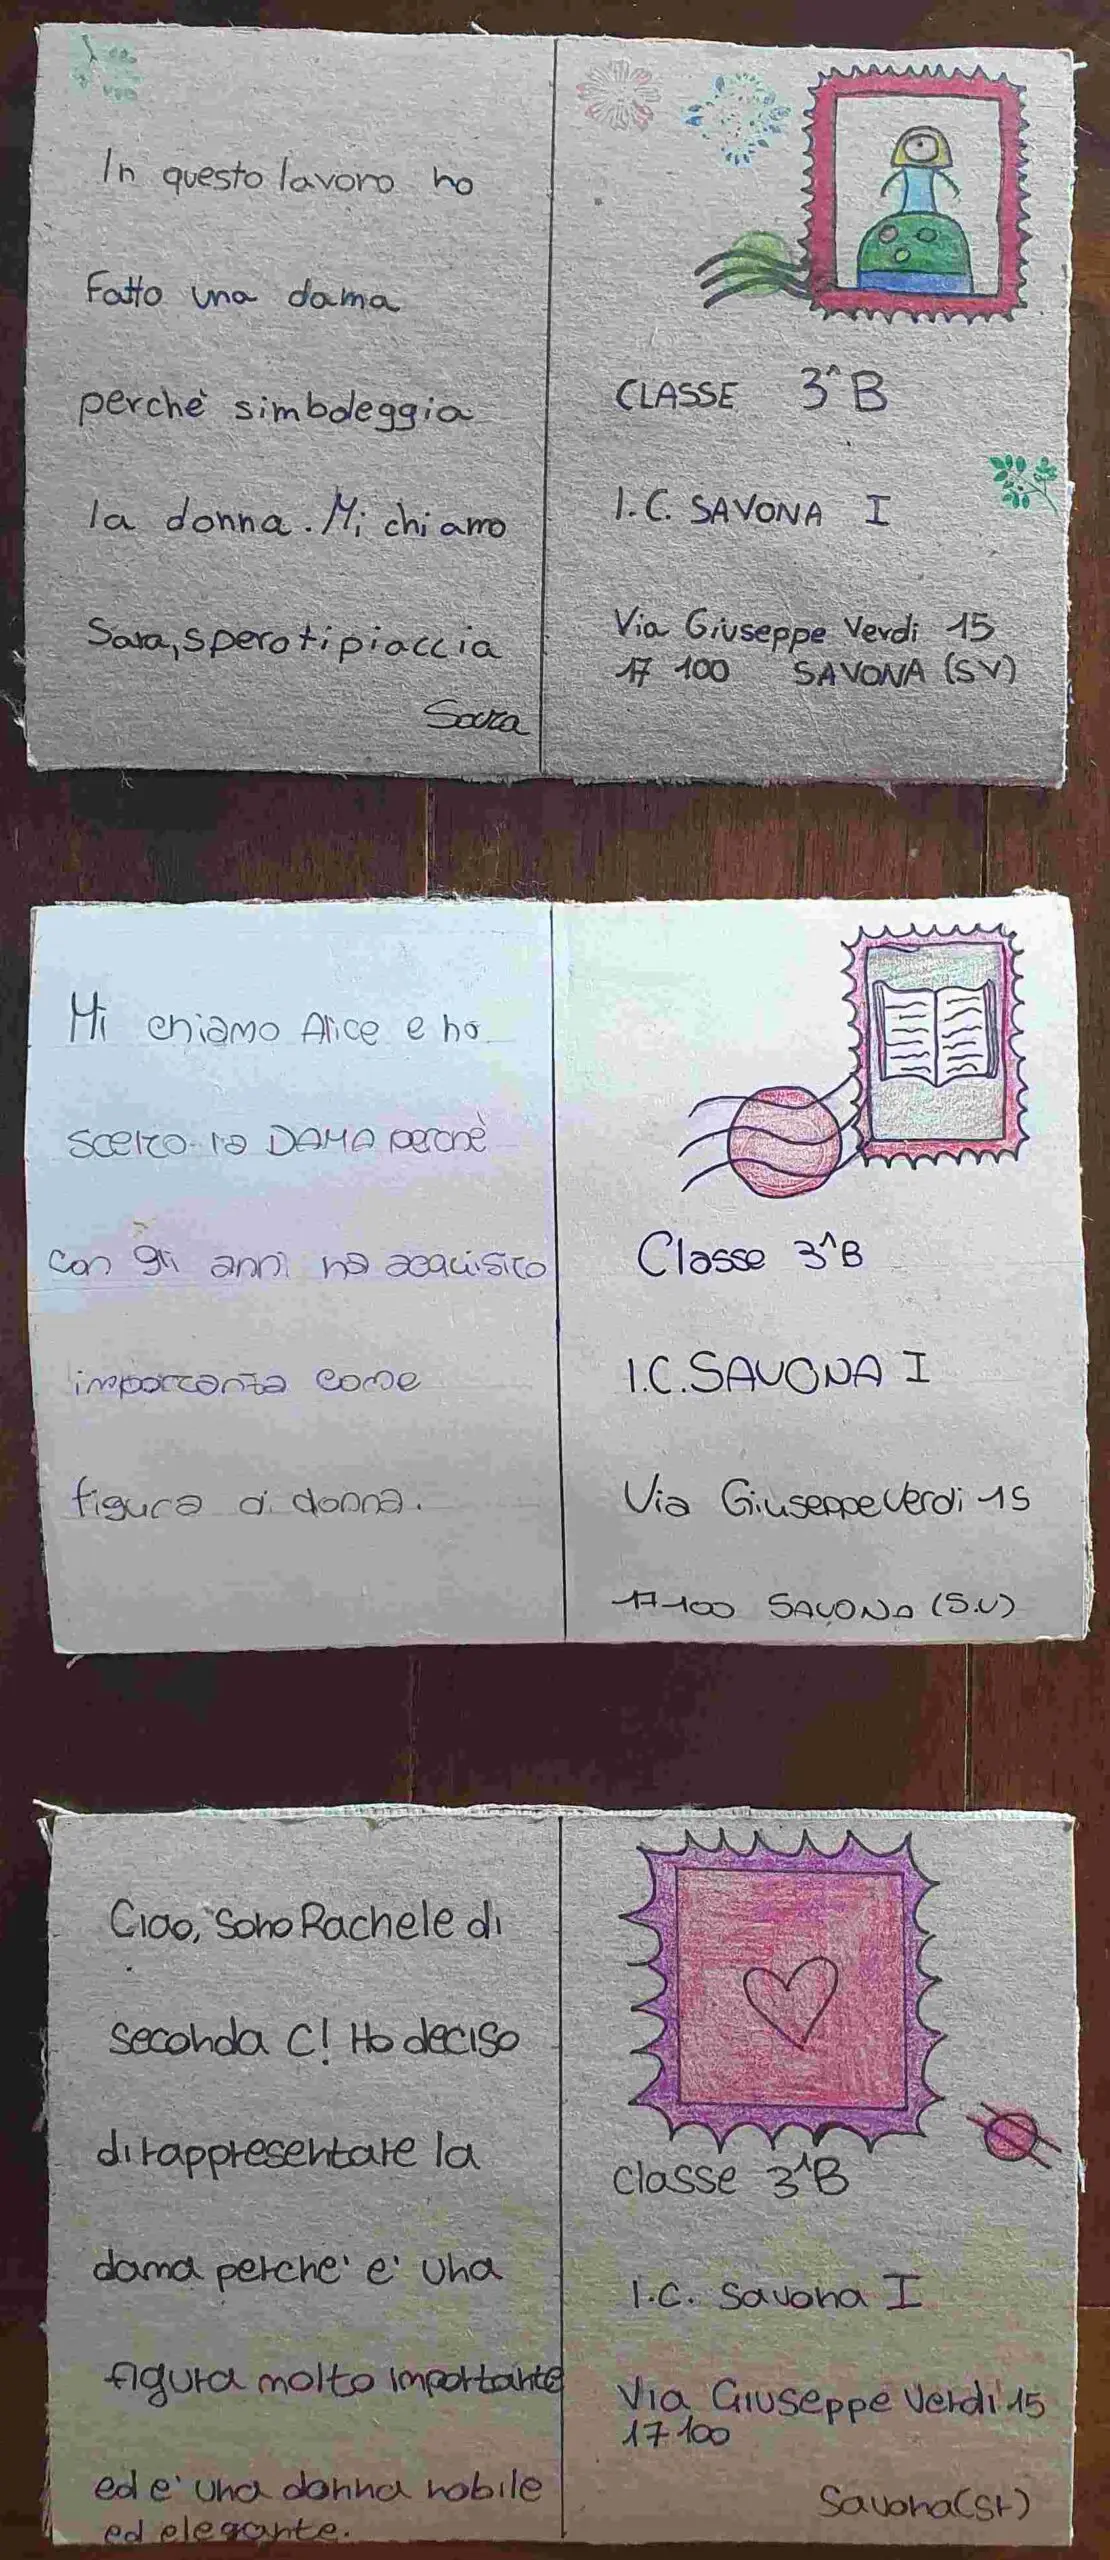 In questo lavoro ho
Fatto una dama
perchè simboleggia
la donna. Mi chiamo
Sara, spero ti piaccia
Sara
CLASSE 3^B
I.C. SAVONA I
Via Giuseppe Verdi 15
17 100 SAVONA (SV)
Mi chiamo Alice e ho
scelto la DAMA perchè
con gli anni ha acquisito
importanza come
figura di donna.
Classe 3^B
I.C. SAVONA I
Via Giuseppe Verdi 15
17100 SAVONA (S.V)
Ciao, sono Rachele di
seconda C! Ho deciso
di rappresentare la
dama perche' e' una
figura molto importante
ed e' una donna nobile
ed elegante.
classe 3^B
I.C. Savona I
Via Giuseppe Verdi 15
17 100
Savona